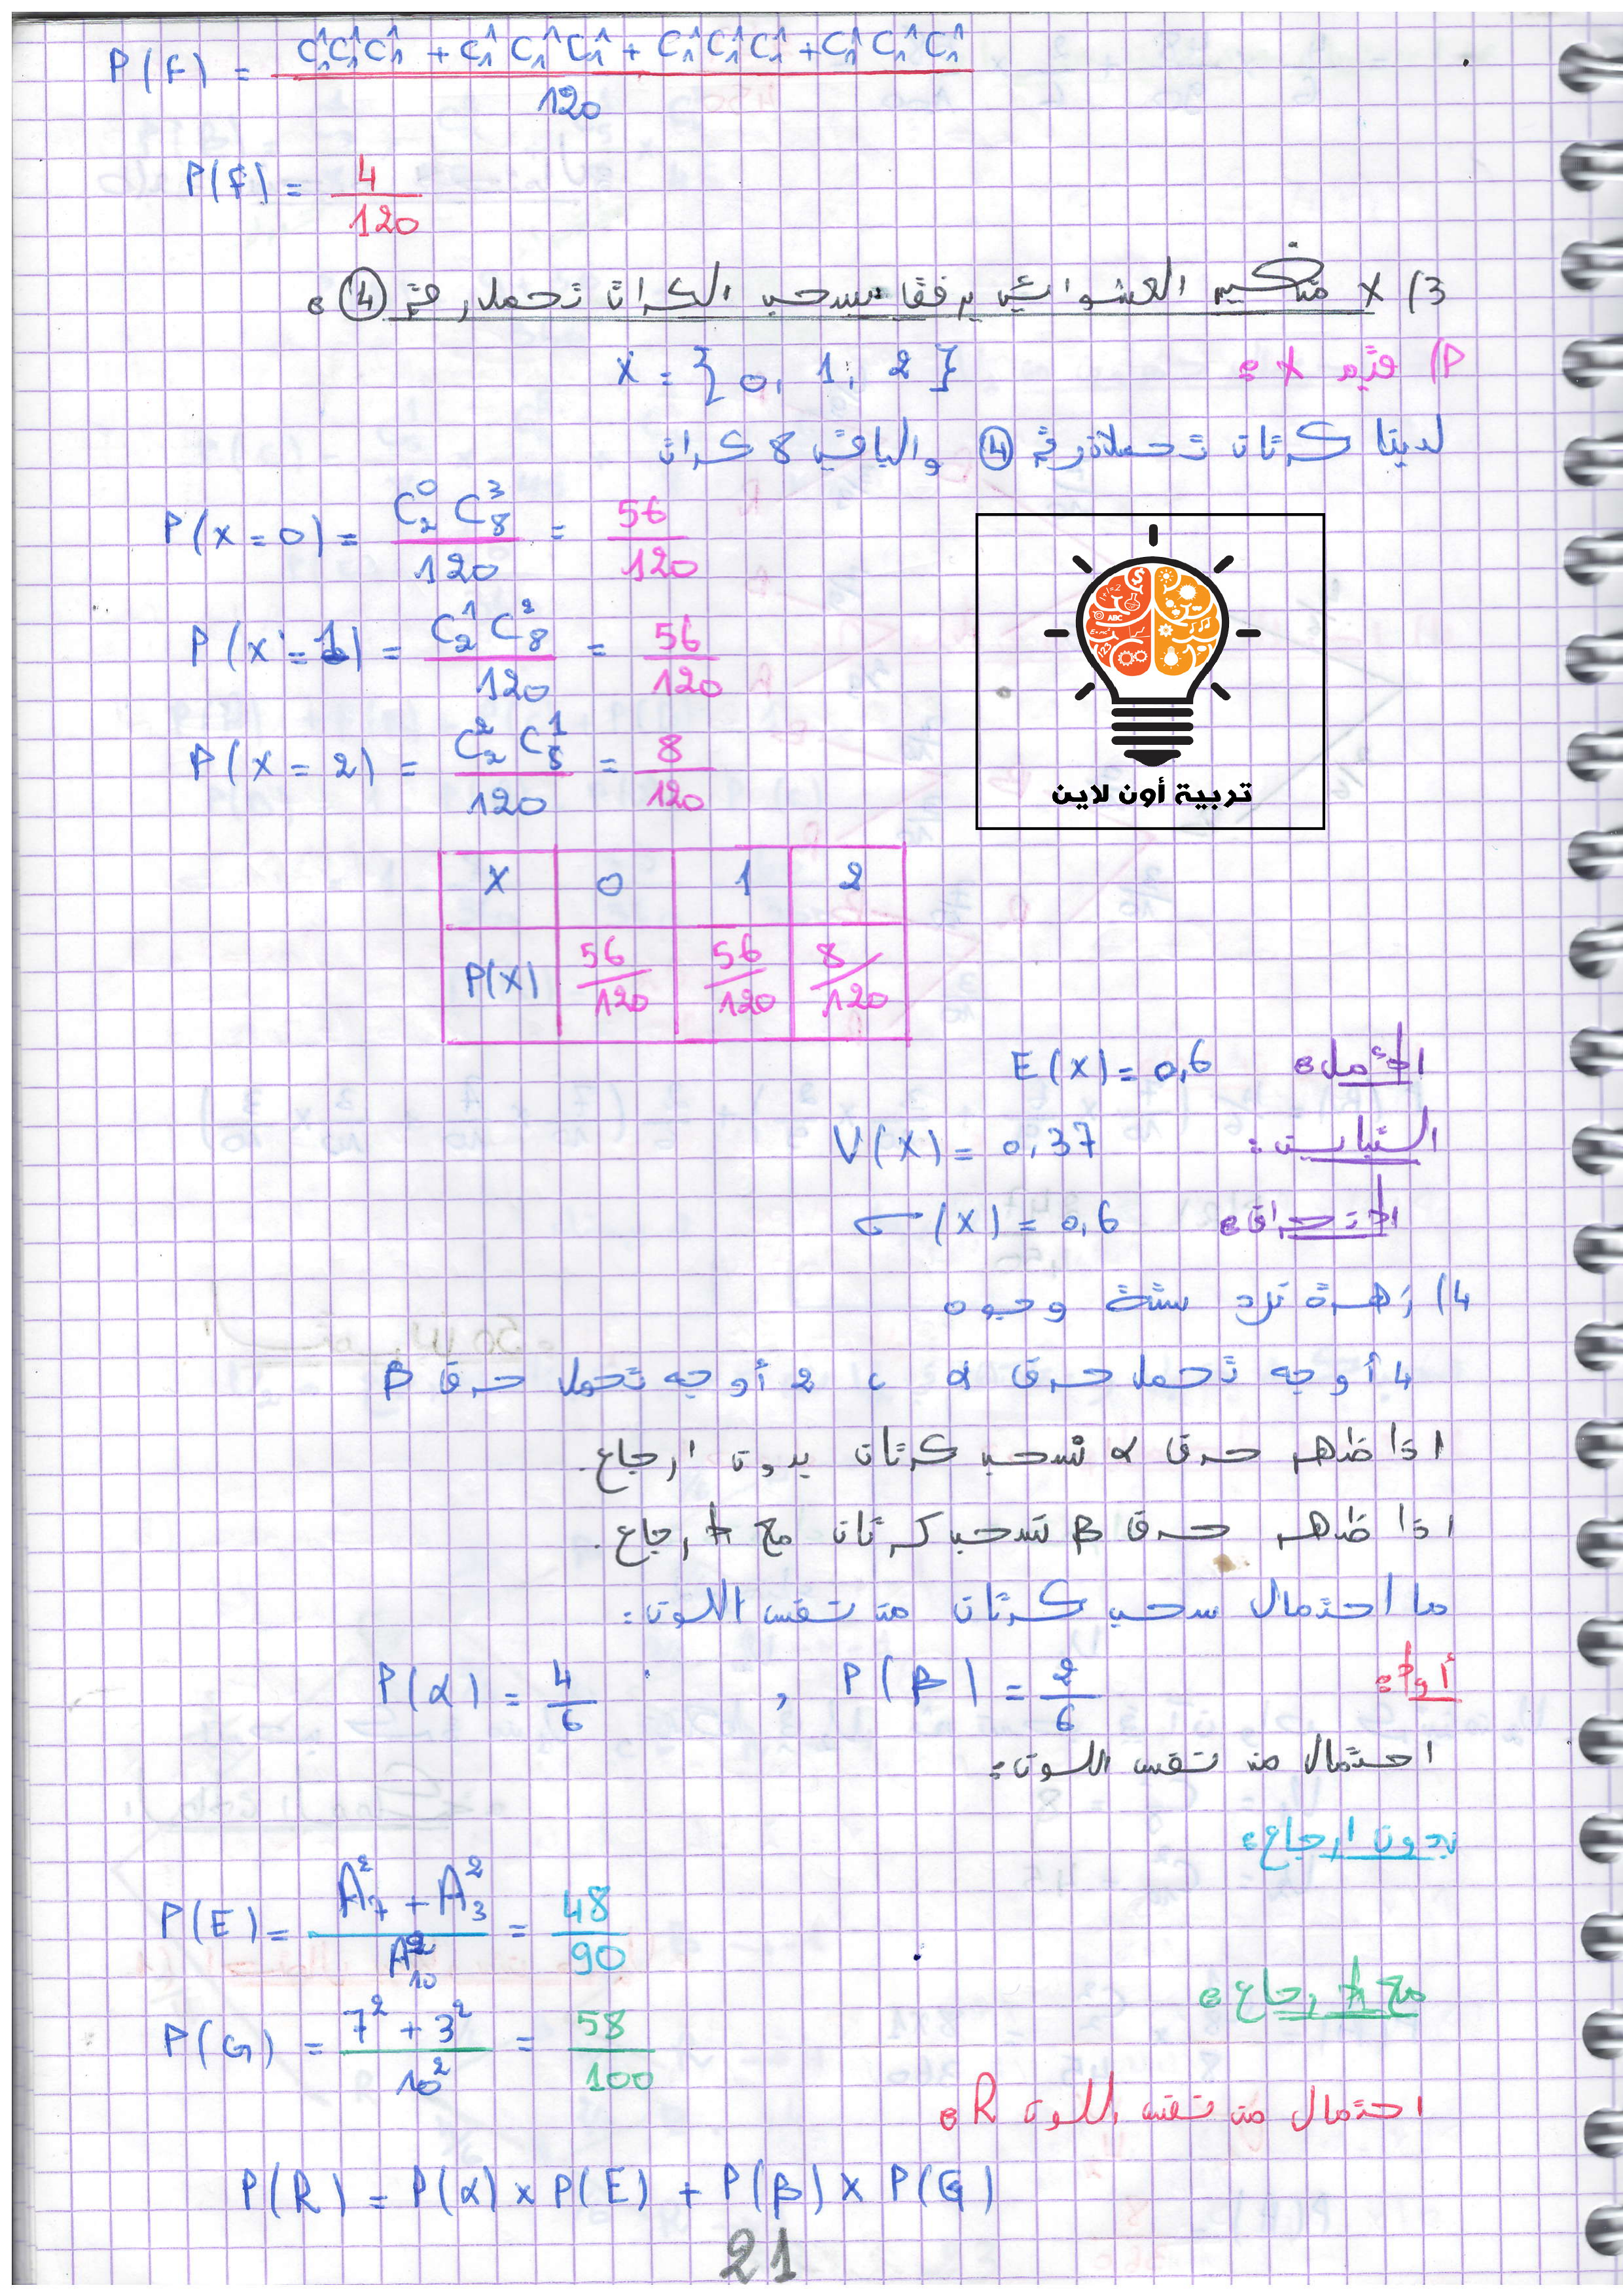 P(F) = (C₁¹C₁¹C₁¹ + C₁¹C₁¹C₁¹ + C₁¹C₁¹C₁¹ + C₁¹C₁¹C₁¹) / 120
P(F) = 4/120
3) X متغير العشوائي يرفق بسحب الكرات تحمل رقم ④:
P) قيم X: X = {0, 1, 2}
لدينا كرتان تحملان رقم ④ والباقي 8 كرات
P(X = 0) = C₂⁰ C₈³ / 120 = 56/120
P(X = 1) = C₂¹ C₈² / 120 = 56/120
P(X = 2) = C₂² C₈¹ / 120 = 8/120
تربية أون لاين
X 0 1 2
P(X) 56/120 56/120 8/120
الأمل: E(X) = 0,6
التباين: V(X) = 0,37
الانحراف: σ(X) = 0,6
4) زهرة نرد ستة وجوه
4 أوجه تحمل حرف α ، 2 أوجه تحمل حرف β
اذا ظهر حرف α نسحب كرتان بدون ارجاع.
اذا ظهر حرف β نسحب كرتان مع الارجاع.
ما احتمال سحب كرتان من نفس اللون:
أولا: P(α) = 4/6 , P(β) = 2/6
احتمال من نفس اللون:
بدون ارجاع:
P(E) = (A₇² + A₃²) / A₁₀² = 48/90
مع الارجاع:
P(G) = (7² + 3²) / 10² = 58/100
احتمال من نفس اللون R:
P(R) = P(α) × P(E) + P(β) × P(G)
21